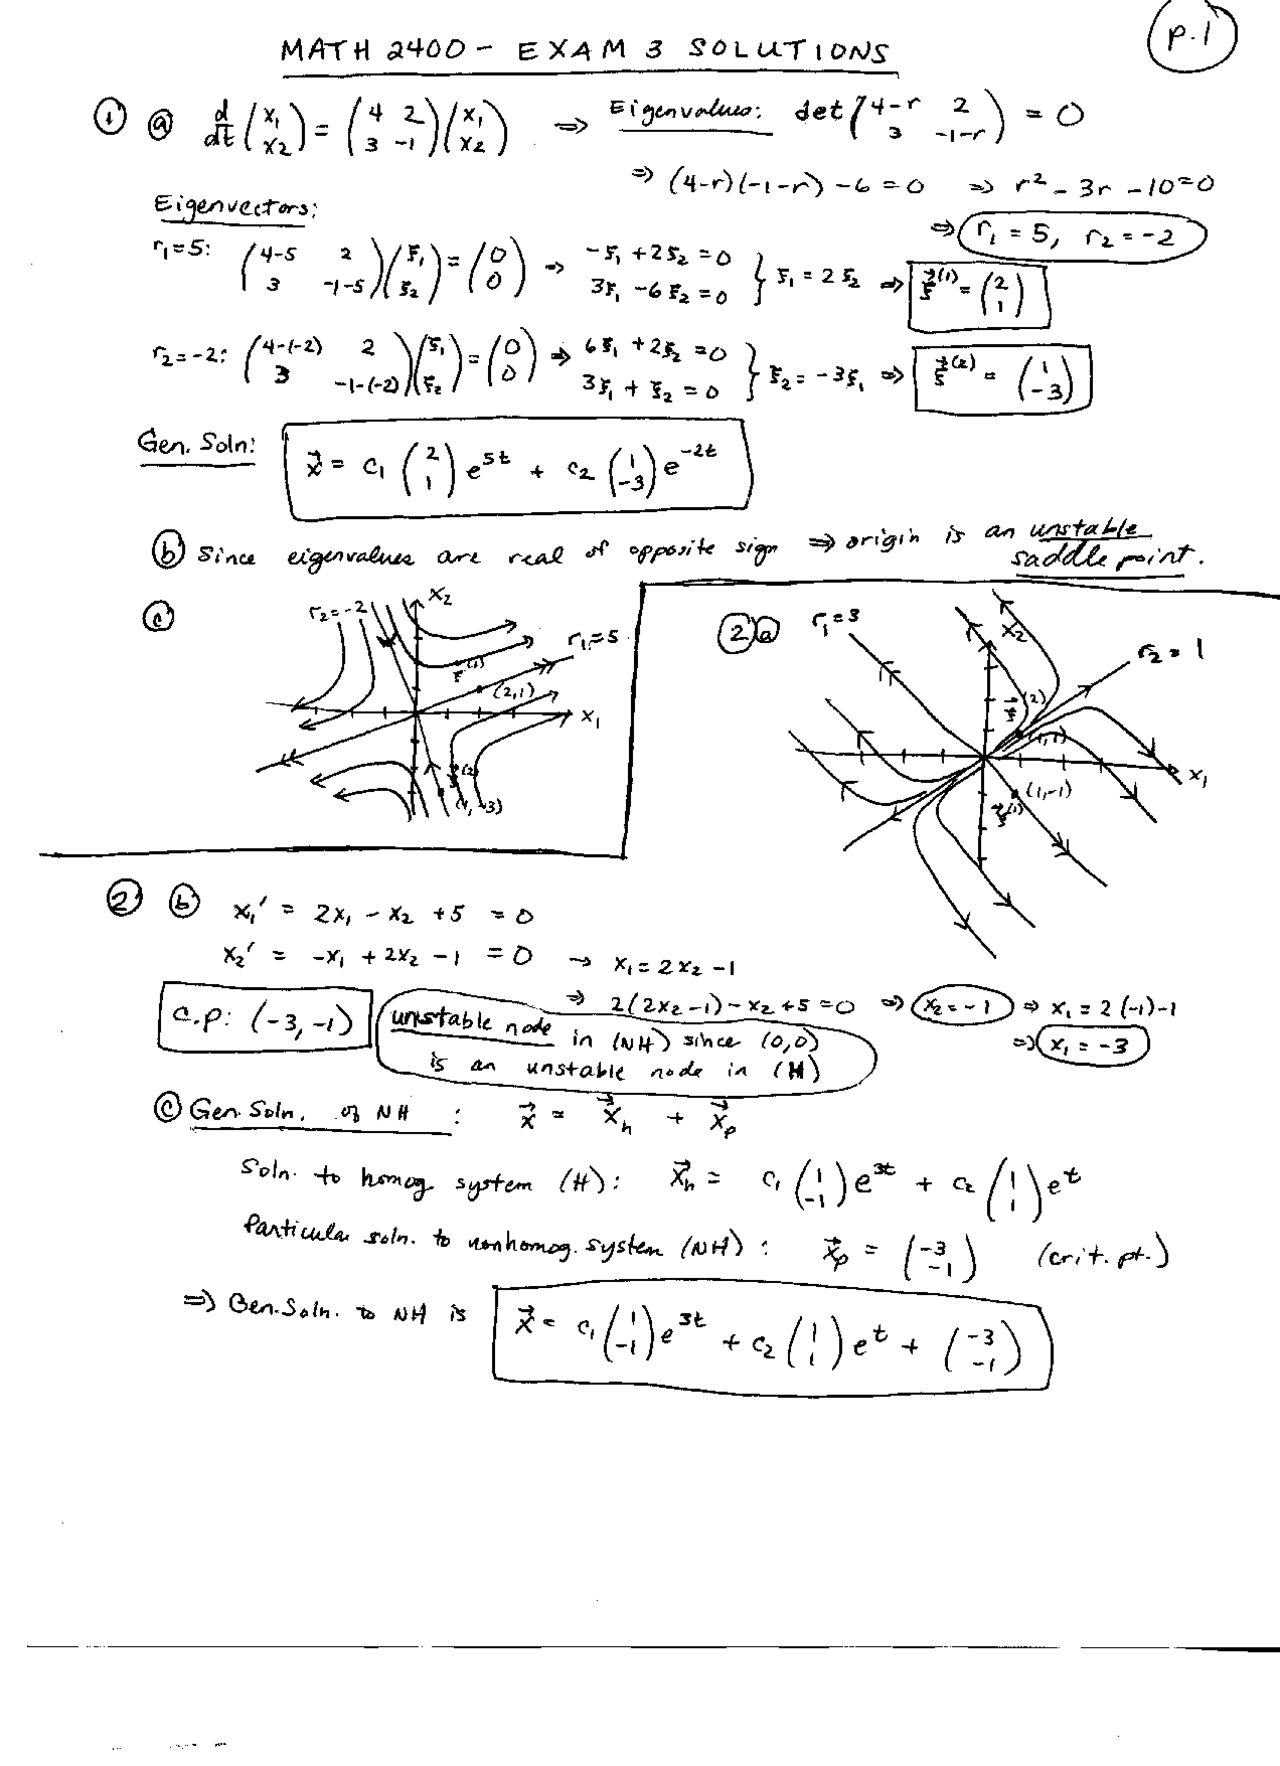 p.1
MATH 2400 - EXAM 3 SOLUTIONS
① ⓐ d/dt (x₁ x₂) = (4 2 3 -1)(x₁ x₂) ⇒ Eigenvalues: det(4-r 2 3 -1-r) = 0
⇒ (4-r)(-1-r) - 6 = 0 ⇒ r² - 3r - 10 = 0
Eigenvectors:
⇒ r₁ = 5, r₂ = -2
r₁=5: (4-5 2 3 -1-5)(ξ₁ ξ₂) = (0 0) ⇒ -ξ₁ + 2ξ₂ = 0 3ξ₁ - 6ξ₂ = 0 } ξ₁ = 2ξ₂ ⇒ ξ⃗⁽¹⁾ = (2 1)
r₂=-2: (4-(-2) 2 3 -1-(-2))(ξ₁ ξ₂) = (0 0) ⇒ 6ξ₁ + 2ξ₂ = 0 3ξ₁ + ξ₂ = 0 } ξ₂ = -3ξ₁ ⇒ ξ⃗⁽²⁾ = (1 -3)
Gen. Soln: x⃗ = c₁ (2 1) e^5t + c₂ (1 -3) e^-2t
ⓑ Since eigenvalues are real of opposite sign ⇒ origin is an unstable
saddle point.
ⓒ r₂=-2 x₂ r₁=5 ξ⃗⁽¹⁾ (2,1) x₁ ξ⃗⁽²⁾ (1,-3)
② ⓐ r₁=3 x₂ r₂=1 ξ⃗⁽²⁾ (1,1) x₁ (1,-1) ξ⃗⁽¹⁾
② ⓑ x₁' = 2x₁ - x₂ + 5 = 0
x₂' = -x₁ + 2x₂ - 1 = 0 → x₁ = 2x₂ - 1
⇒ 2(2x₂-1) - x₂ + 5 = 0 ⇒ x₂ = -1 ⇒ x₁ = 2(-1)-1
⇒ x₁ = -3
c.p: (-3, -1) unstable node in (NH) since (0,0)
is an unstable node in (H)
ⓒ Gen. Soln. of NH : x⃗ = x⃗h + x⃗p
Soln. to homog system (H): x⃗h = c₁ (1 -1) e^3t + c₂ (1 1) e^t
Particular soln. to nonhomog. system (NH) : x⃗p = (-3 -1) (crit. pt.)
⇒ Gen. Soln. to NH is x⃗ = c₁ (1 -1) e^3t + c₂ (1 1) e^t + (-3 -1)